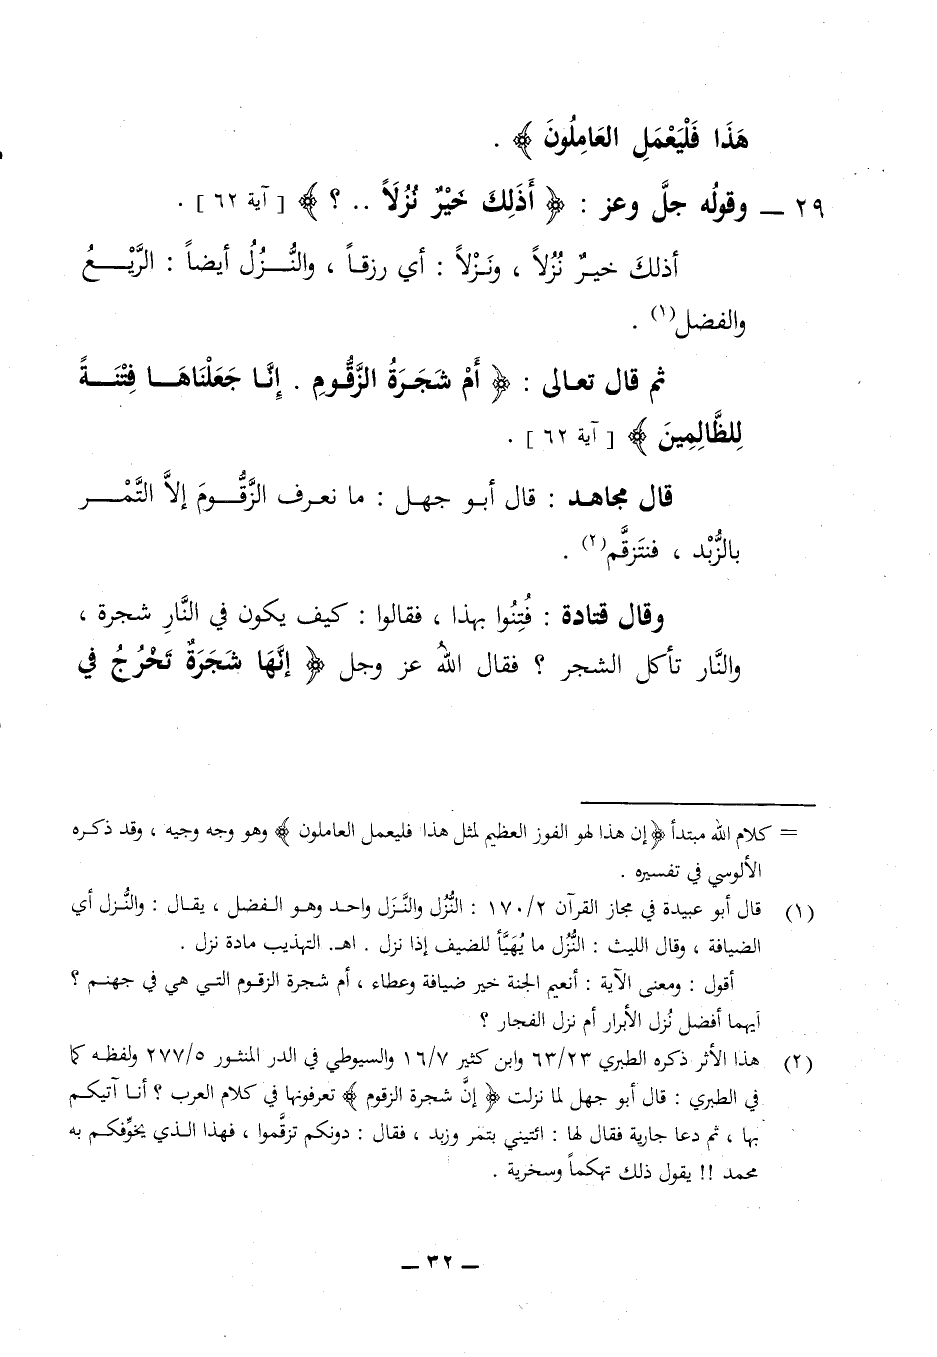 هَذَا فَلْيَعْمَلِ العَامِلُونَ ﴾ .
٢٩ ـ وقولُه جلَّ وعز : ﴿ أَذَلِكَ خَيْرٌ نُزُلَاً .. ؟ ﴾ [ آية ٦٢ ] .
أذلكَ خيرٌ نُزُلاً ، ونَزْلاً : أي رزقاً ، والنُّزُلُ أيضاً : الرَّيْعُ
والفضل(١) .
ثم قال تعالى : ﴿ أَمْ شَجَرَةُ الزَّقُّومِ . إِنَّا جَعَلْنَاهَا فِتْنَةً
لِلظَّالِمِينَ ﴾ [ آية ٦٢ ] .
قال مجاهد : قال أبو جهل : ما نعرف الزَّقُّومَ إلاَّ التَّمْر
بالزُّبْد ، فنتَزقَّم(٢) .
وقال قتادة : فُتِنُوا بهذا ، فقالوا : كيف يكون في النَّارِ شجرة ،
والنَّار تأكل الشجر ؟ فقال اللهُ عز وجل ﴿ إنَّهَا شَجَرَةٌ تَخْرُجُ في
= كلام الله مبتدأ ﴿إن هذا لهو الفوز العظيم لمثل هذا فليعمل العاملون ﴾ وهو وجه وجيه ، وقد ذكره
الألوسي في تفسيره .
(١) قال أبو عبيدة في مجاز القرآن ١٧٠/٢ : النُّزُل والنَّزَل واحد وهو الفضل ، يقال : والنُّزل أي
الضيافة ، وقال الليث : النُّزُل ما يُهَيَّأ للضيف إذا نزل . اهـ. التهذيب مادة نزل .
أقول : ومعنى الآية : أنعيم الجنة خير ضيافة وعطاء ، أم شجرة الزقوم التي هي في جهنم ؟
أيهما أفضل نُزل الأبرار أم نزل الفجار ؟
(٢) هذا الأثر ذكره الطبري ٦٣/٢٣ وابن كثير ١٦/٧ والسيوطي في الدر المنثور ٢٧٧/٥ ولفظه كما
في الطبري : قال أبو جهل لما نزلت ﴿ إنَّ شجرة الزقوم ﴾ تعرفونها في كلام العرب ؟ أنا آتيكم
بها ، ثم دعا جارية فقال لها : ائتيني بتمر وزبد ، فقال : دونكم تزقَّموا ، فهذا الذي يخوِّفكم به
محمد !! يقول ذلك تهكماً وسخرية .
ـ ٣٢ ـ